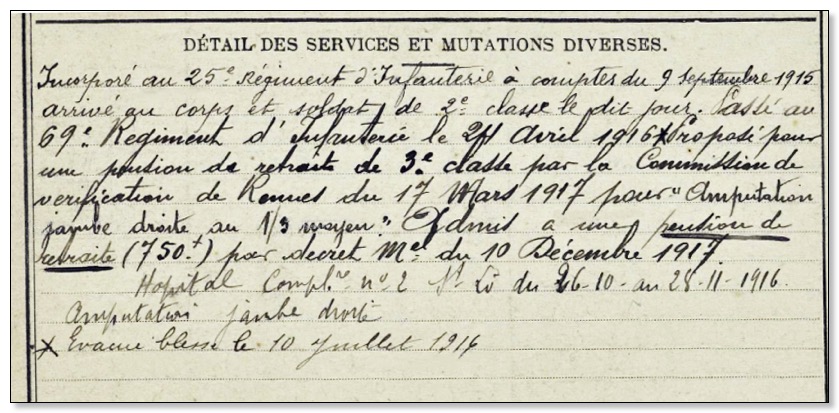 DÉTAIL DES SERVICES ET MUTATIONS DIVERSES.
Incorporé au 25e Régiment d'Infanterie à compter du 9 Septembre 1915
arrivé au corps et soldat de 2e classe le dit jour. Passé au
69e Regiment d'Infanterie le 24 Avril 1916 x Proposé pour
une pension de retraite de 3e classe par la Commission de
verification de Rennes du 17 Mars 1917 pour "Amputation
jambe droite au 1/3 moyen". Admis a une pension de
retraite (750f) par decret Mel du 10 Décembre 1917.
Hopital Complre no 2 St Lô du 26-10- au 28-11-1916.
Amputation jambe droite
x Evacué blessé le 10 Juillet 1916